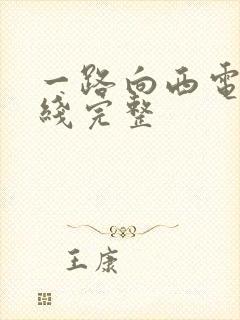 一路向西电
线完整
王康